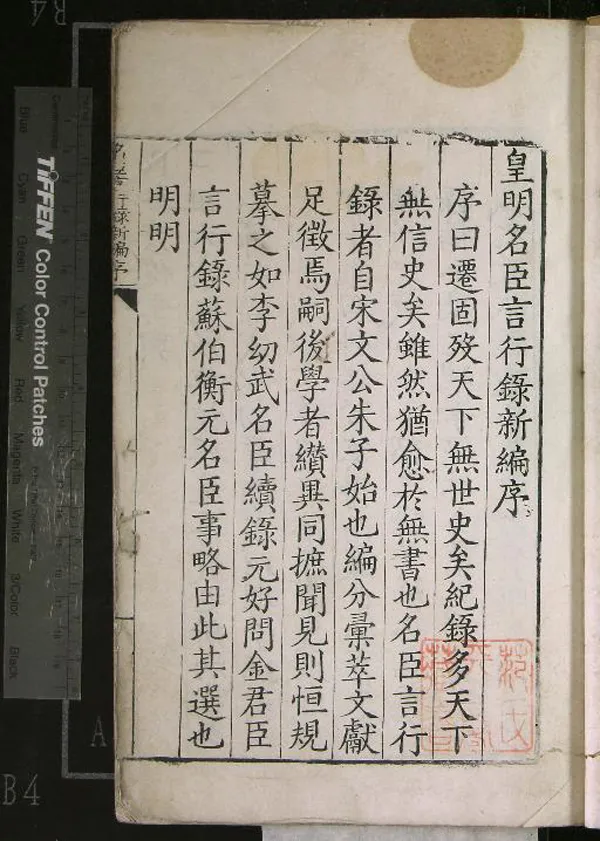 皇明名臣言行錄新編序
序曰遷固歿天下無世史矣紀錄多天下
無信史矣雖然猶愈於無書也名臣言行
錄者自宋文公朱子始也編分彙萃文獻
足徵焉嗣後學者纘異同摭聞見則恒規
摹之如李幼武名臣續錄元好問金君臣
言行錄蘇伯衡元名臣事略由此其選也
明明
名臣言行錄新編序
TIFFEN Color Control Patches
Blue
Cyan
Green
Yellow
Red
Magenta
White
3/Color
Black
B4
A
B4